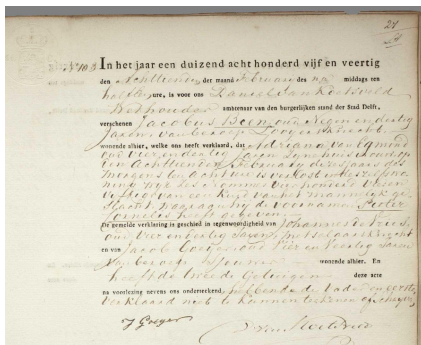 27
N 103
In het jaar een duizend acht honderd vijf en veertig
den achttienden der maand Februari des na middags ten
half ure, is voor ons Daniel van Koetsveld
Wethouder ambtenaar van den burgerlijken stand der Stad Delft,
verschenen Jacobus Been oud Negen en dertig
Jaren van beroep
wonende alhier, welke ons heeft verklaard, dat Adriana van Egmond
oud vier en dertig Jaren Zijne huisvrouw op
den achttienden Februari dezes Jaars des
morgens ten acht ure is verlost in dezelfs wo
ning Wijk zes nommer
van een kind van het mannelijk ge
slacht waaraan hij de voornamen Pieter
Cornelis heeft gegeven
De gemelde verklaring is geschied in tegenwoordigheid van Johannes de Vries,
oud vier en vijftig Jaren,
en van Jacob Goeger oud Vier en Veertig Jaren
Van beroep wonende alhier. En
heeft de tweede Getuigen deze acte
na voorlezing nevens ons onderteekend, hebbende de Vader en eerste
verklaard niet te kunnen teekenen
J Goeger
D van Koetsveld